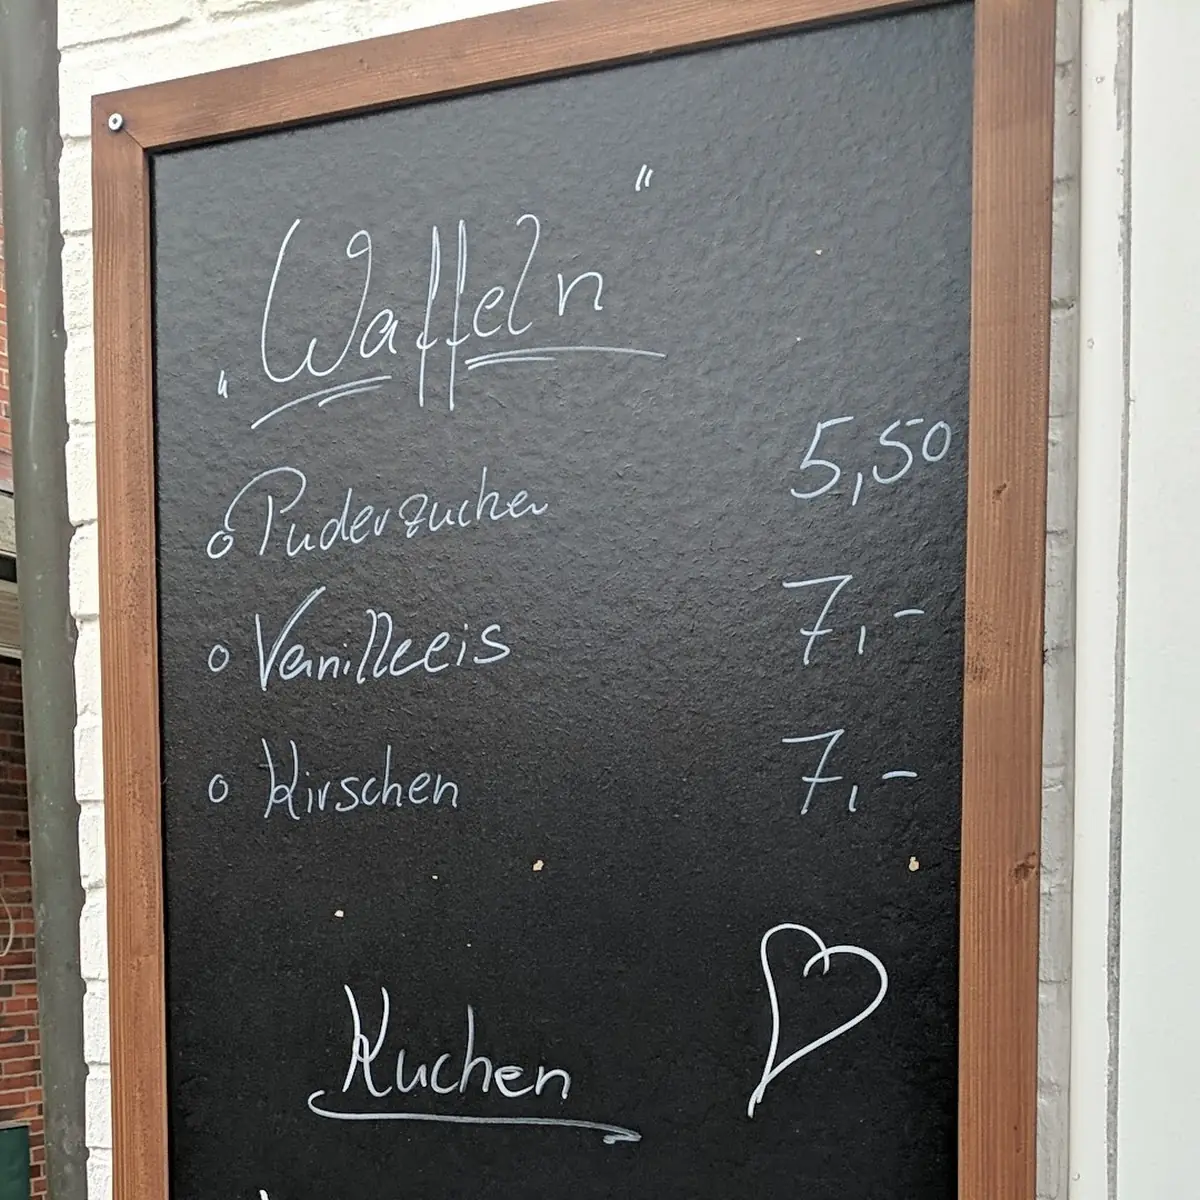 „Waffeln"
o Puderzucker 5,50
o Vanilleeis 7,-
o Kirschen 7,-
Kuchen